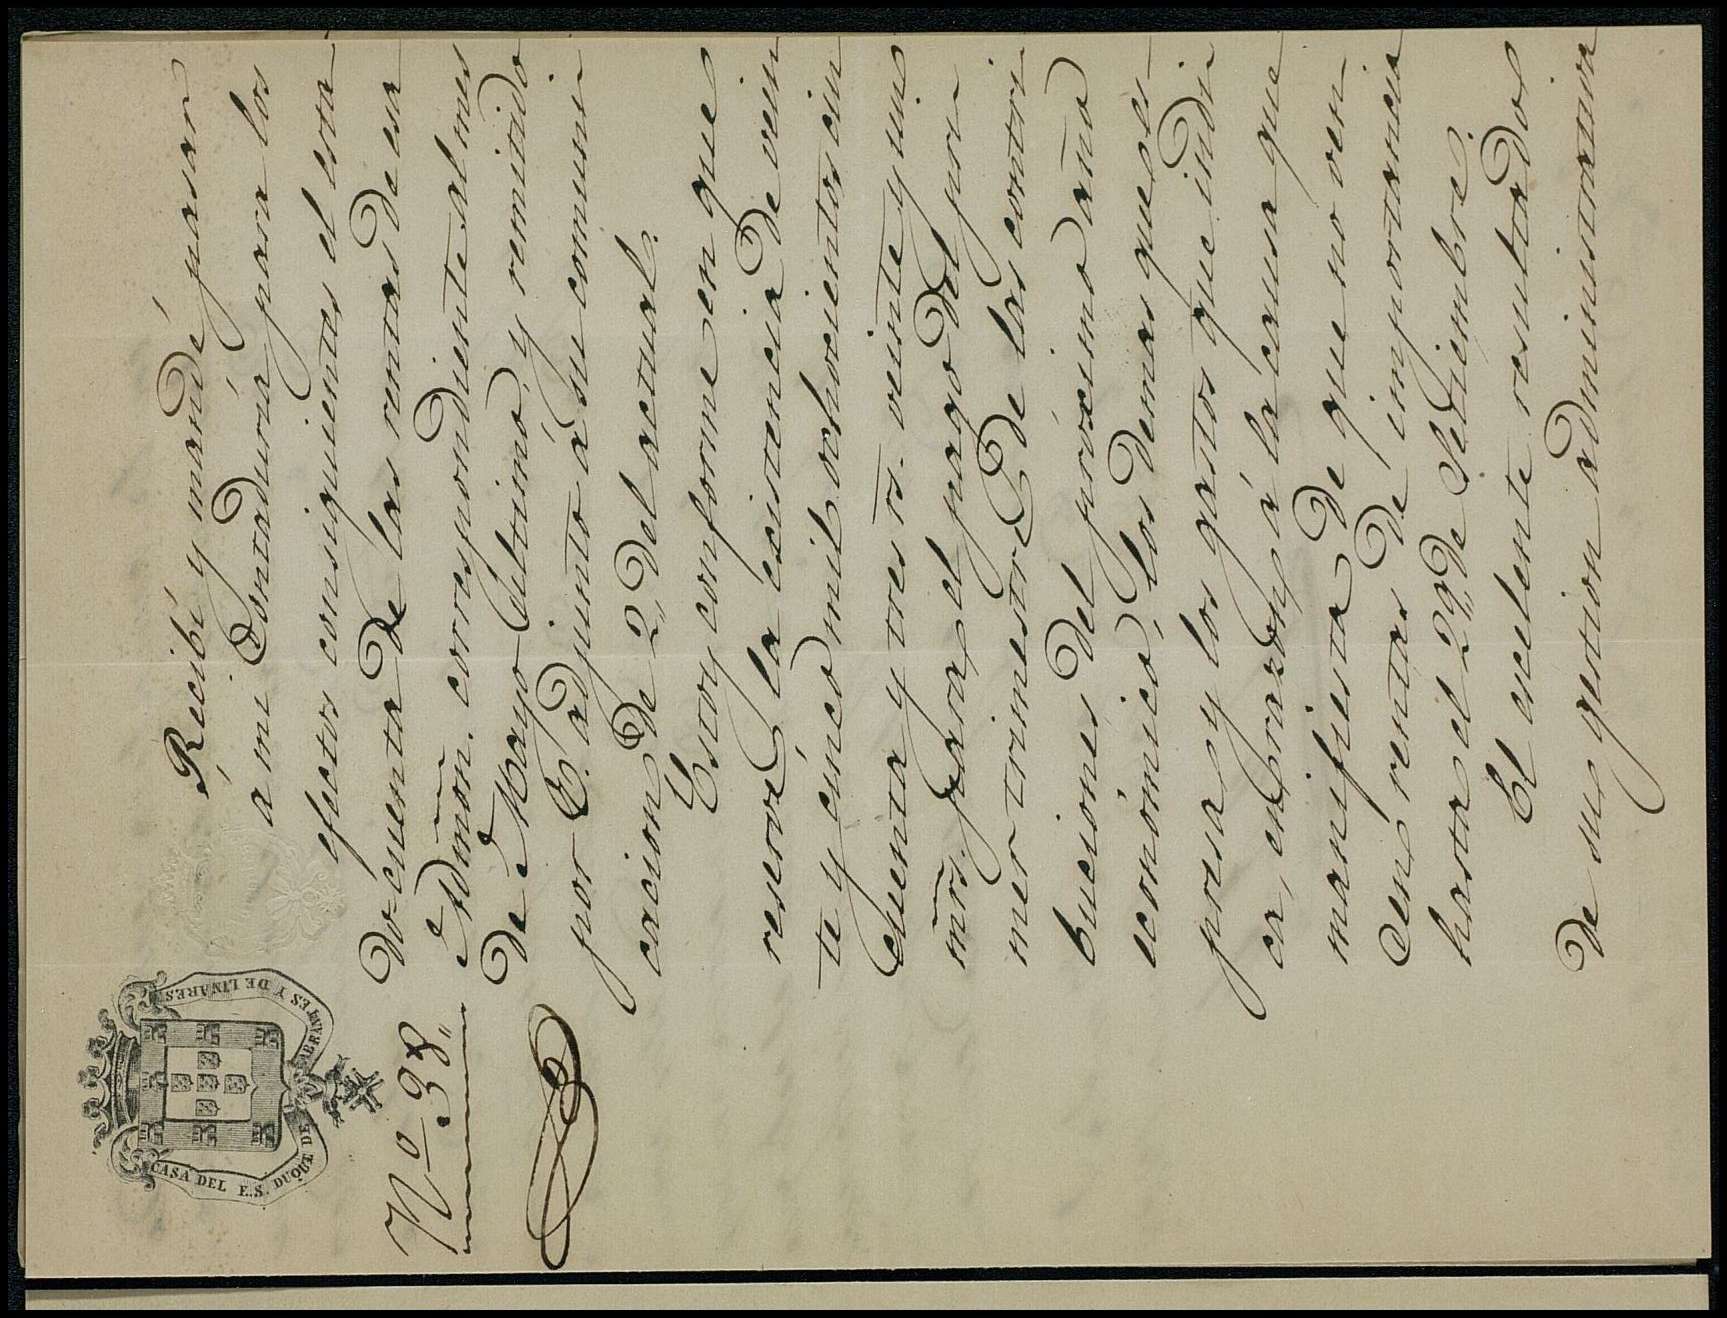 CASA DEL E.S. DUQUE DE ABRANTES Y DE LINARES
Nº 38,,
Recibí y mandé pasar
a mi Contaduría para los
efectos consiguientes el esta
do cuenta de las rentas de esa
Admōn. correspondiente al mes
de Mayo último, y remitido
por E. adjunto á su comuni
cacion de 2,, del actual.
Estoy conforme en que
reserve la existencia de vein
te y cinco mil ochocientos cin
cuenta y tres rs. veinte y un
mrs. para el pago del pri
mer trimestre de las contri
buciones del próximo año
económico, los demas que es-
presa y los gastos que indi
ca, en razon á la causa que
manifiesta de que no ven
cen rentas de importancia
hasta el 29,, de Setiembre.
El excelente resultado
de su gestion administrativa